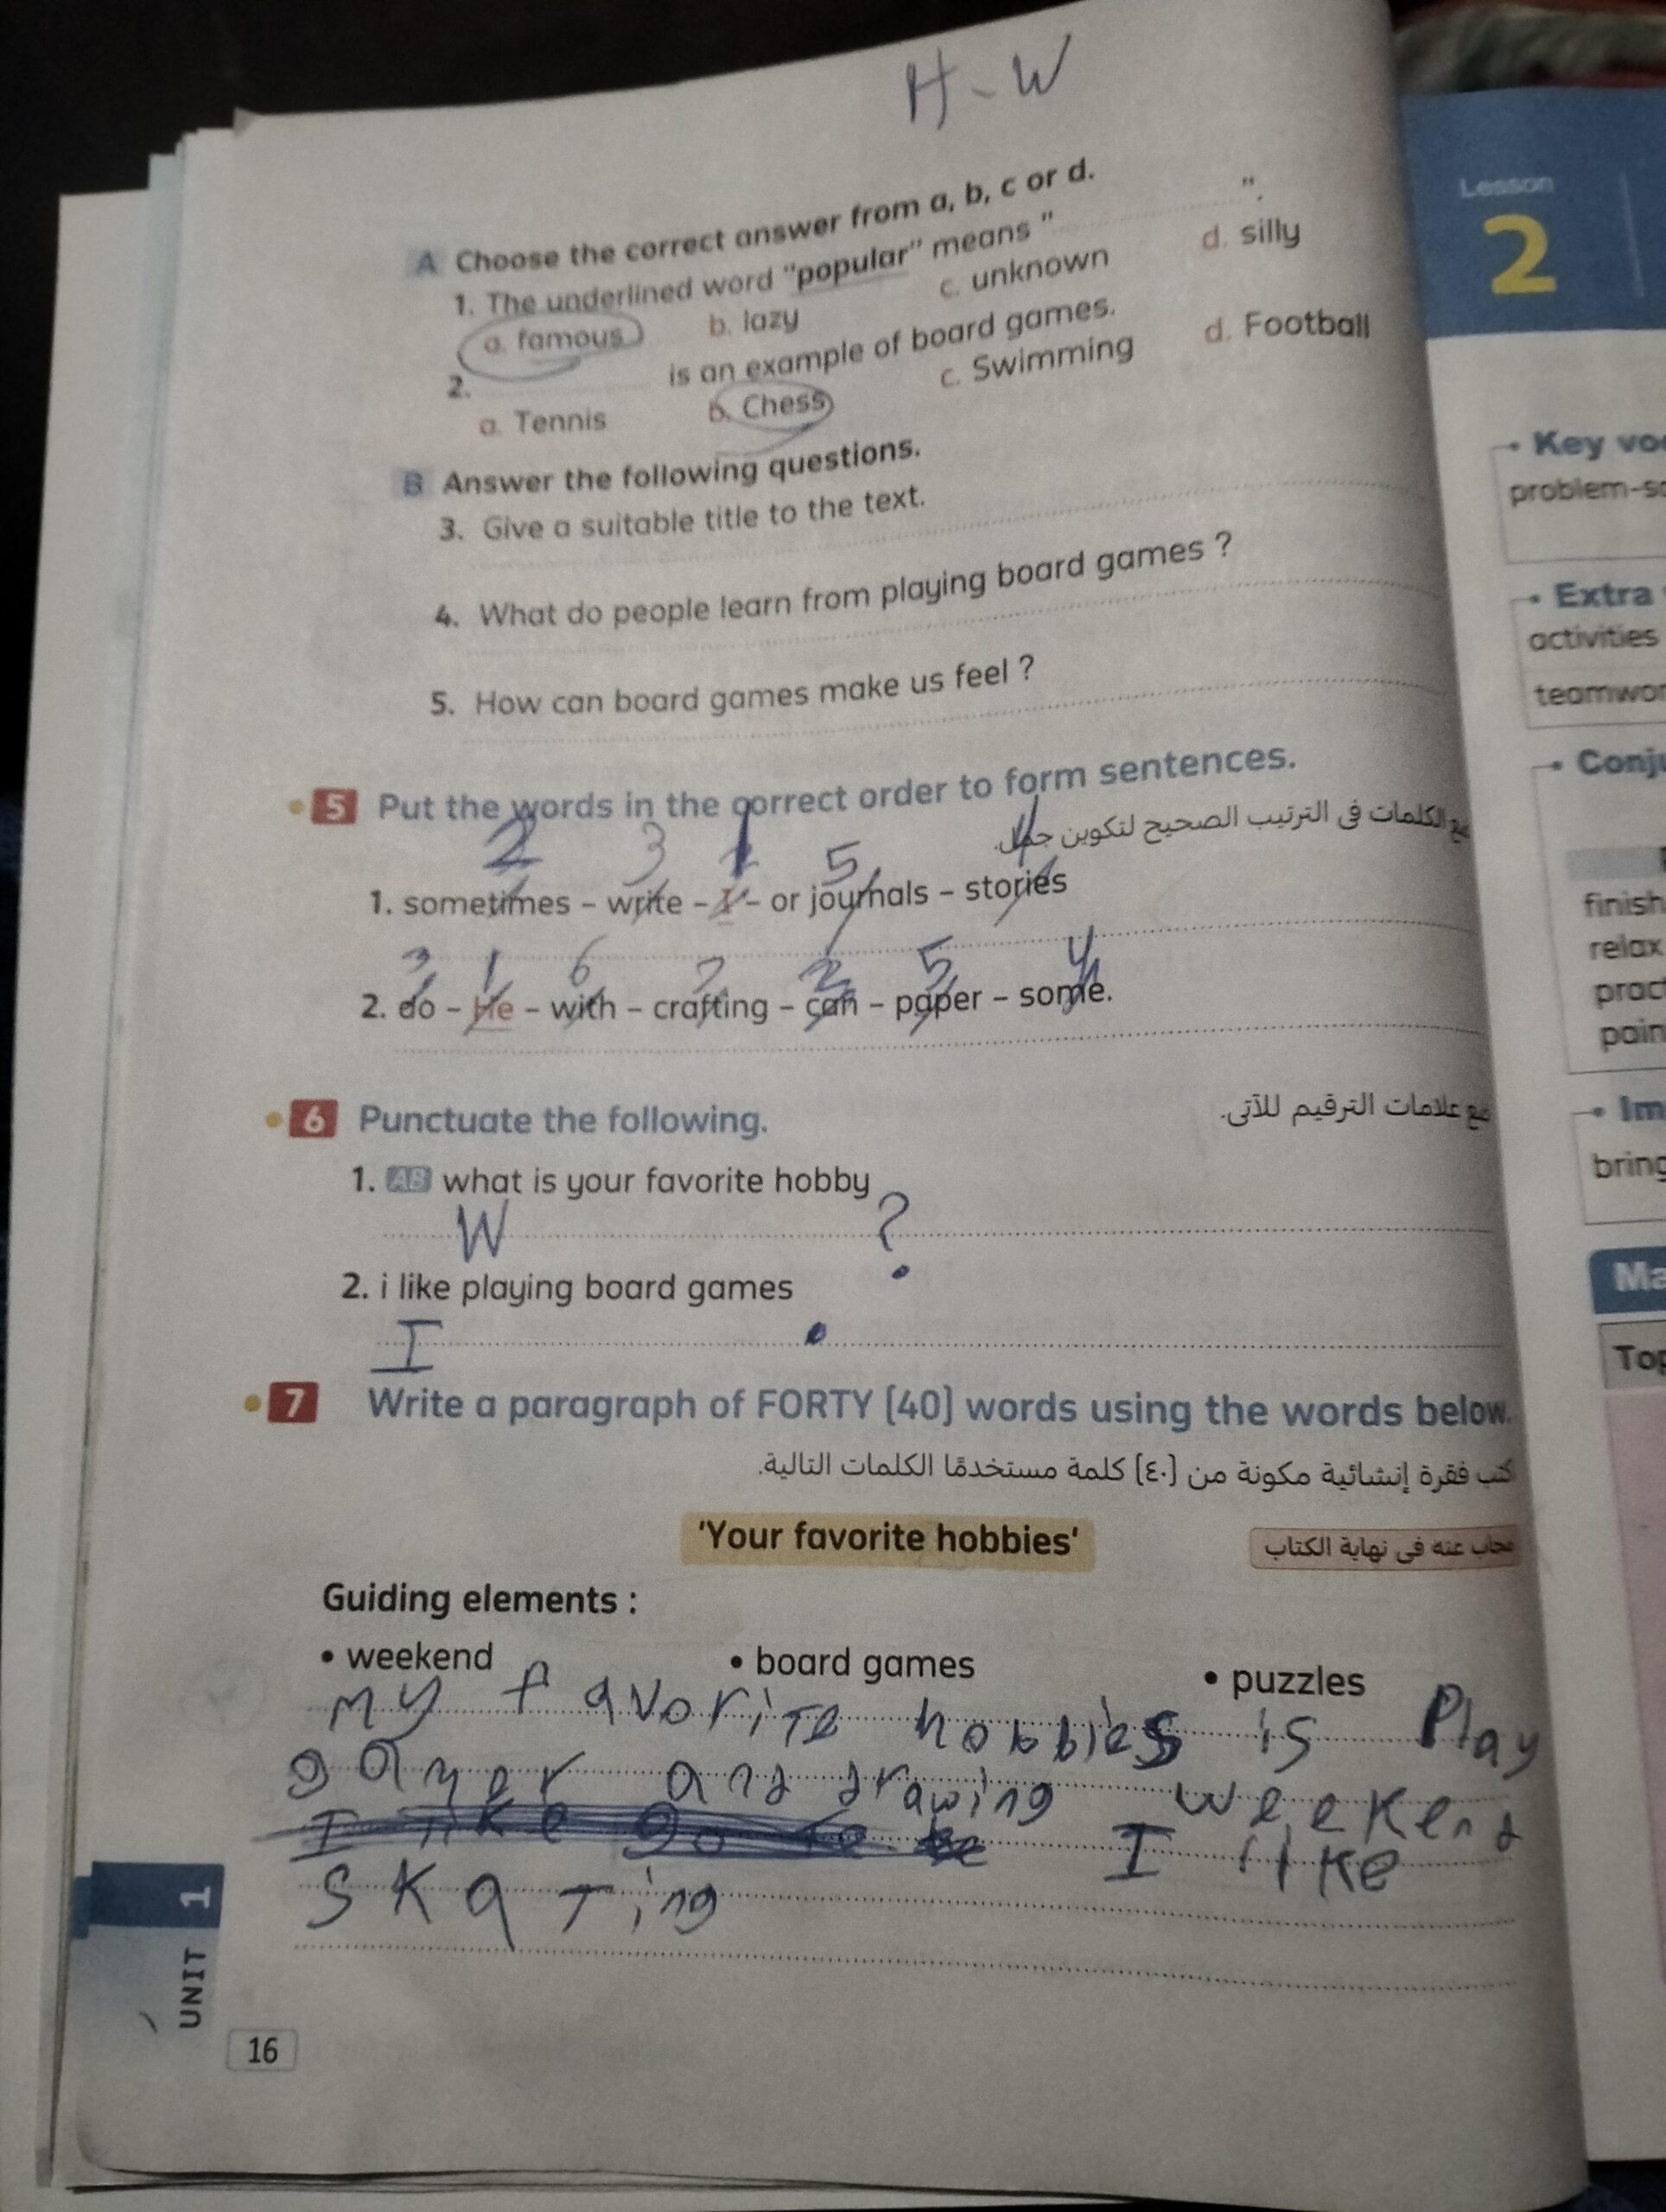 H-W
A Choose the correct answer from a, b, c or d.
1. The underlined word "popular" means " ".
a. famous b. lazy c. unknown d. silly
2. is an example of board games.
a. Tennis b. Chess c. Swimming d. Football
B Answer the following questions.
3. Give a suitable title to the text.
4. What do people learn from playing board games ?
5. How can board games make us feel ?
5 Put the words in the correct order to form sentences.
الكلمات فى الترتيب الصحيح لتكوين جمل.
2 3 1 5 4
1. sometimes – write – I – or journals – stories
3 1 6 7 2 5 4
2. do – He – with – crafting – can – paper – some.
6 Punctuate the following.
ضع علامات الترقيم للآتى.
1. AB what is your favorite hobby
W ?
2. i like playing board games
I .
7 Write a paragraph of FORTY (40) words using the words below.
كتب فقرة إنشائية مكونة من (٤٠) كلمة مستخدمًا الكلمات التالية.
'Your favorite hobbies'
مجاب عنه فى نهاية الكتاب
Guiding elements :
• weekend • board games • puzzles
my favorite hobbies is Play
gamer and drawing weekend
I like go to I like
skating
UNIT 1
16
Lesson
2
Key
Extra
activities
finish
relax
bring